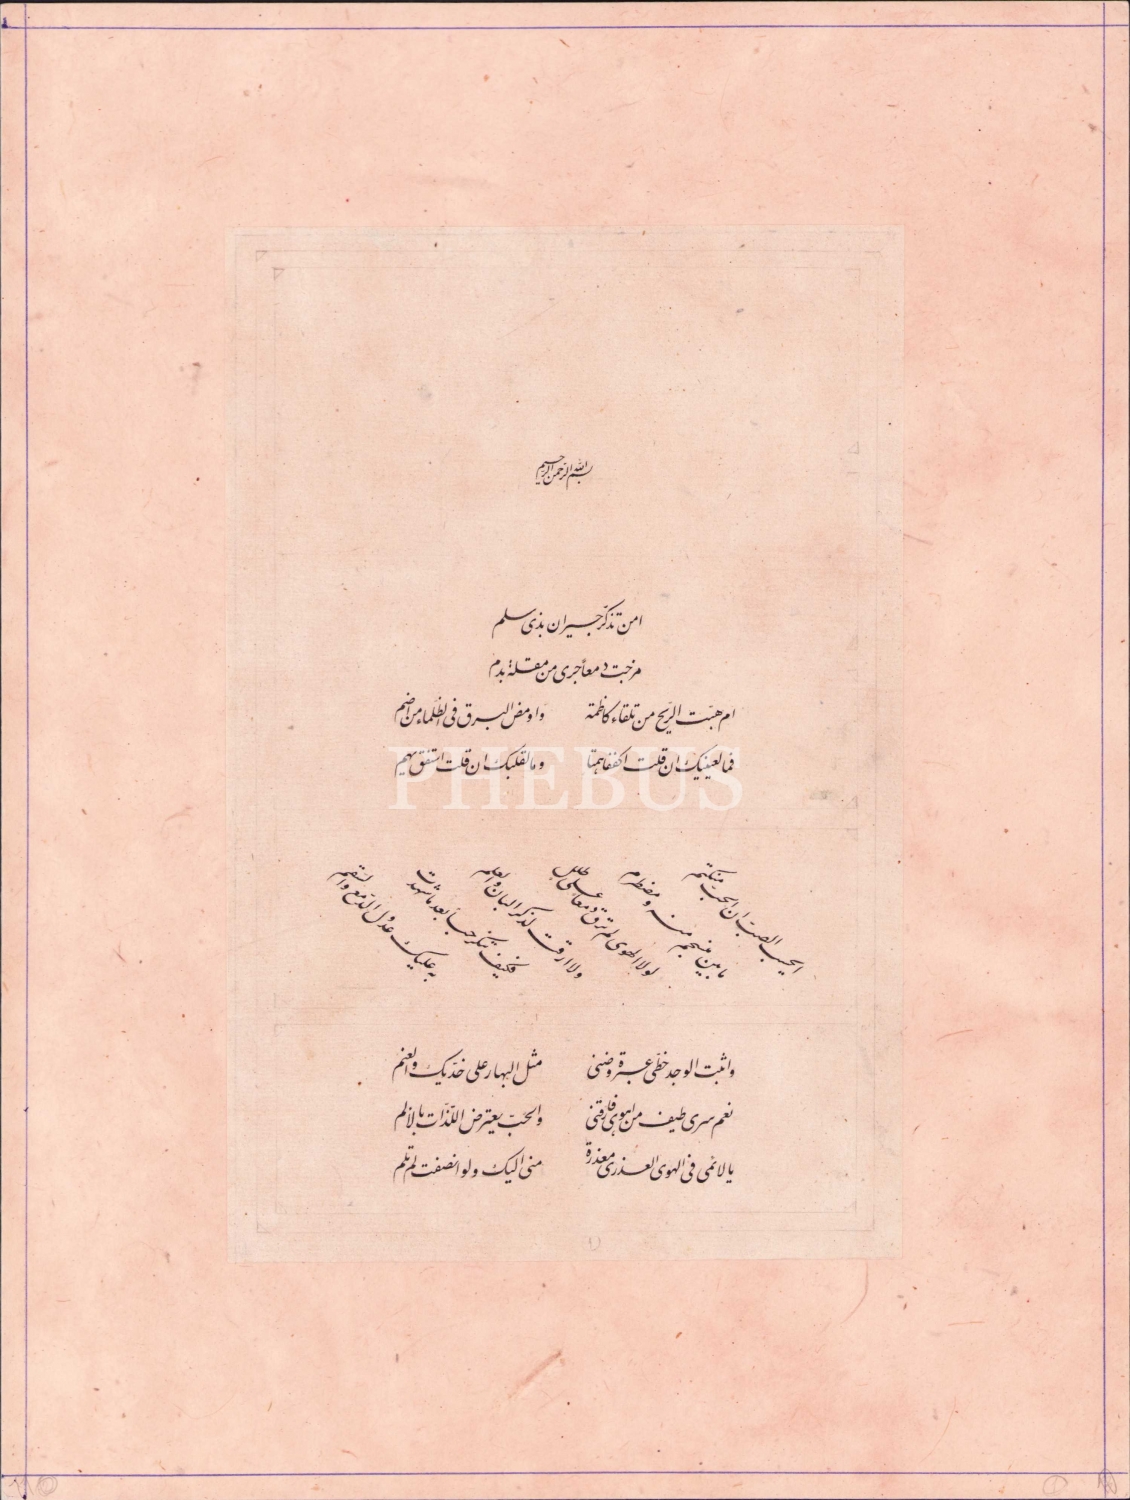 بسم الله الرحمن الرحيم
امن تذكّر جيران بذى سلم
مزجت دمعاً جرى من مقلة بدم
ام هبّت الرّيح من تلقاء كاظمة واومض البرق فى الظّلماء من اضم
فما لعينيك ان قلت اكففا همتا وما لقلبك ان قلت استفق يهم
PHEBUS
ايحسب الصب ان الحبّ منكتم
ما بين منسجم منه ومضطرم
لولا الهوى لم ترق دمعا على طلل
ولا ارقت لذكر البان والعلم
فكيف تنكر حبّاً بعد ما شهدت
به عليك عدول الدّمع والسّقم
واثبت الوجد خطّى عبرة وضنى مثل البهار على خدّيك والعنم
نعم سرى طيف من اهوى فارّقنى والحبّ يعترض اللّذّات بالالم
يا لائمى فى الهوى العذرى معذرة منى اليك ولو انصفت لم تلم